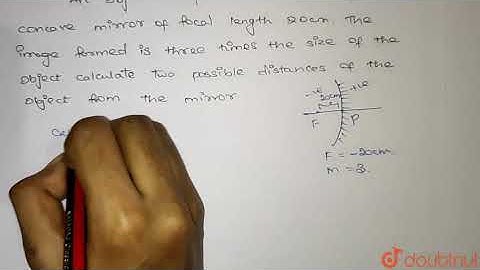 An
concave mirror of focal length 20cm. The
image formed is three times the size of the
object calculate two possible distances of the
object from the mirror
-ve
+ve
20cm
F
P
F = -20cm.
m = 3.
doubtnut